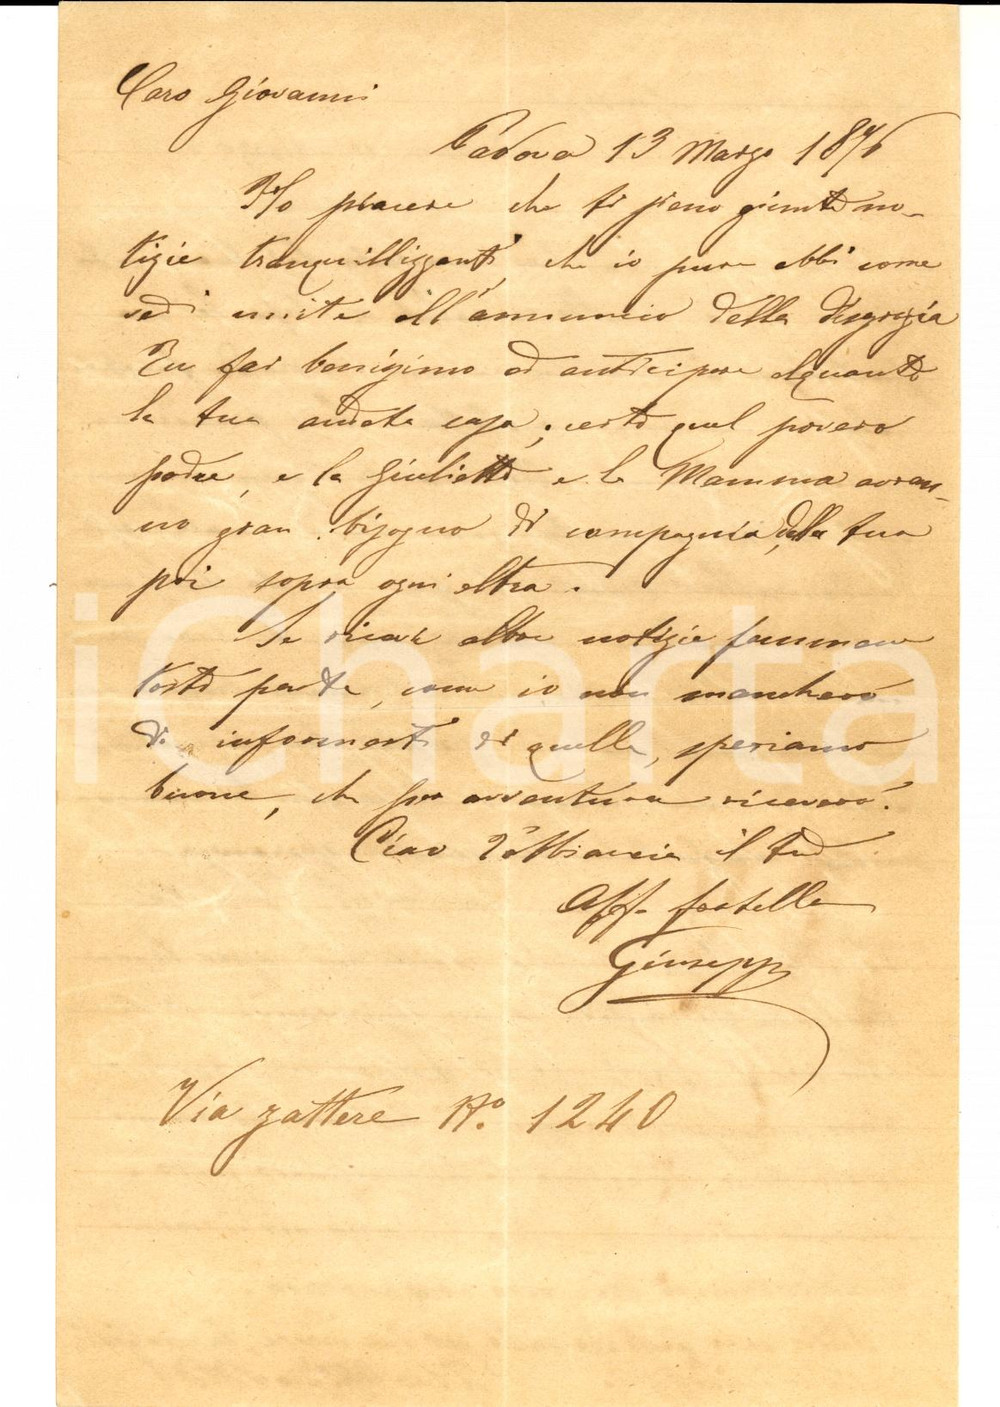 Caro Giovanni
Padova 13 Marzo 1876
Ho piacere che ti sieno giunte no-
tizie tranquillizzanti, che io pure ebbi come
vedi unite all'annuncio della disgrazia
Tu fai benissimo ad anticipare alquanto
la tua andata casa; certo quel povero
padre, e la Giulietta e la Mamma avran-
no gran bisogno di compagnia, della tua
poi sopra ogni altra.
Se ricevi altre notizie fammene
tosto parte, come io non mancherò
di informarti di quelle, speriamo
buone, che per avventura riceverò.
Ciao T'abbraccia il tuo
Aff. fratello
Giuseppe
Via zattere No. 1240
iCharta